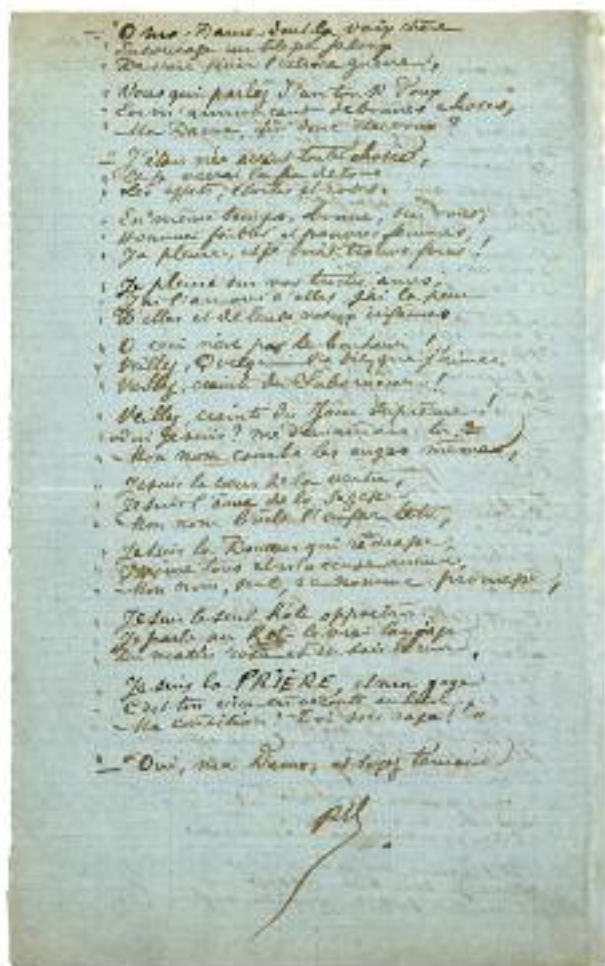 — "O ma Dame dont la voix chère
" Encourage un
" Vous qui parlez d'un ton si doux
" En m'annonçant de bonnes choses,
" Ma Dame, qui donc êtes vous ?
— J'étais née avant toutes choses,
" Et je verrai la fin de tous
" Les effets, étoiles et roses.
" En même temps, bonne, sur vous,
" Hommes faibles et pauvres femmes,
" Je pleure, et je vous trouve fous !
" Je pleure sur vos tristes âmes,
" J'ai l'amour d'elles, j'ai la peur
" D'elles et de leurs vœux infâmes.
" O ceci n'est pas le bonheur !
" Veillez, Quelqu'un l'a dit que j'aime,
" Veillez, crainte du Suborneur !
" Veillez, crainte du Jour Suprême !
" Qui je suis ? me demandais tu ?
" Mon nom courbe les anges mêmes,
" Je suis le cœur de la vertu,
" Je suis l'âme de la sagesse
" Mon nom brûle l'enfer têtu,
" Je suis la Douceur qui redresse,
" J'aime tous et n'accuse aucun,
" Mon nom, seul, se nomme promesse,
" Je suis le seul hôte opportun
" Je parle au Roi le vrai langage
" Du matin rose et du soir brun,
" Je suis la PRIÈRE, et mon gage
" C'est ton vice en déroute au loin,
" Ma condition : Toi sois sage ! "
— " Oui, ma Dame, et soyez témoin